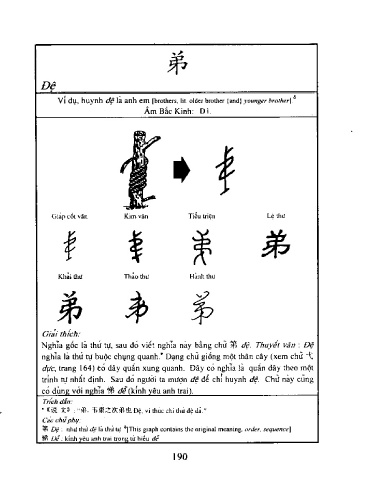 弟
Đệ
Ví dụ, huynh đệ là anh em [brothers, lit older brother {and} younger brother] 8
Âm Bắc Kinh: Dì.
Giáp cốt văn Kim văn Tiểu triện Lệ thư
Khải thư Thảo thư Hành thư
Giải thích:
Nghĩa gốc là thứ tự, sau đó viết nghĩa này bằng chữ 第 đệ. Thuyết văn : Đệ
nghĩa là thứ tự buộc chung quanh. Dạng chữ giống một thân cây (xem chữ 弋
dực, trang 164) có dây quấn xung quanh. Dây có nghĩa là quấn dây theo một
trình tự nhất định. Sau đó người ta mượn đệ để chỉ huynh đệ. Chữ này cũng
có dùng với nghĩa 悌 đễ (kính yêu anh trai).
Trích dẫn:
《说文》: "弟, 韦束之次弟也 Đệ, vi thúc chi thứ đệ dã."
Các chữ phụ:
第 Đệ : như thứ đệ là thứ tự [This graph contains the original meaning, order, sequence]
悌 Đễ : kính yêu anh trai trong từ hiếu đễ
190